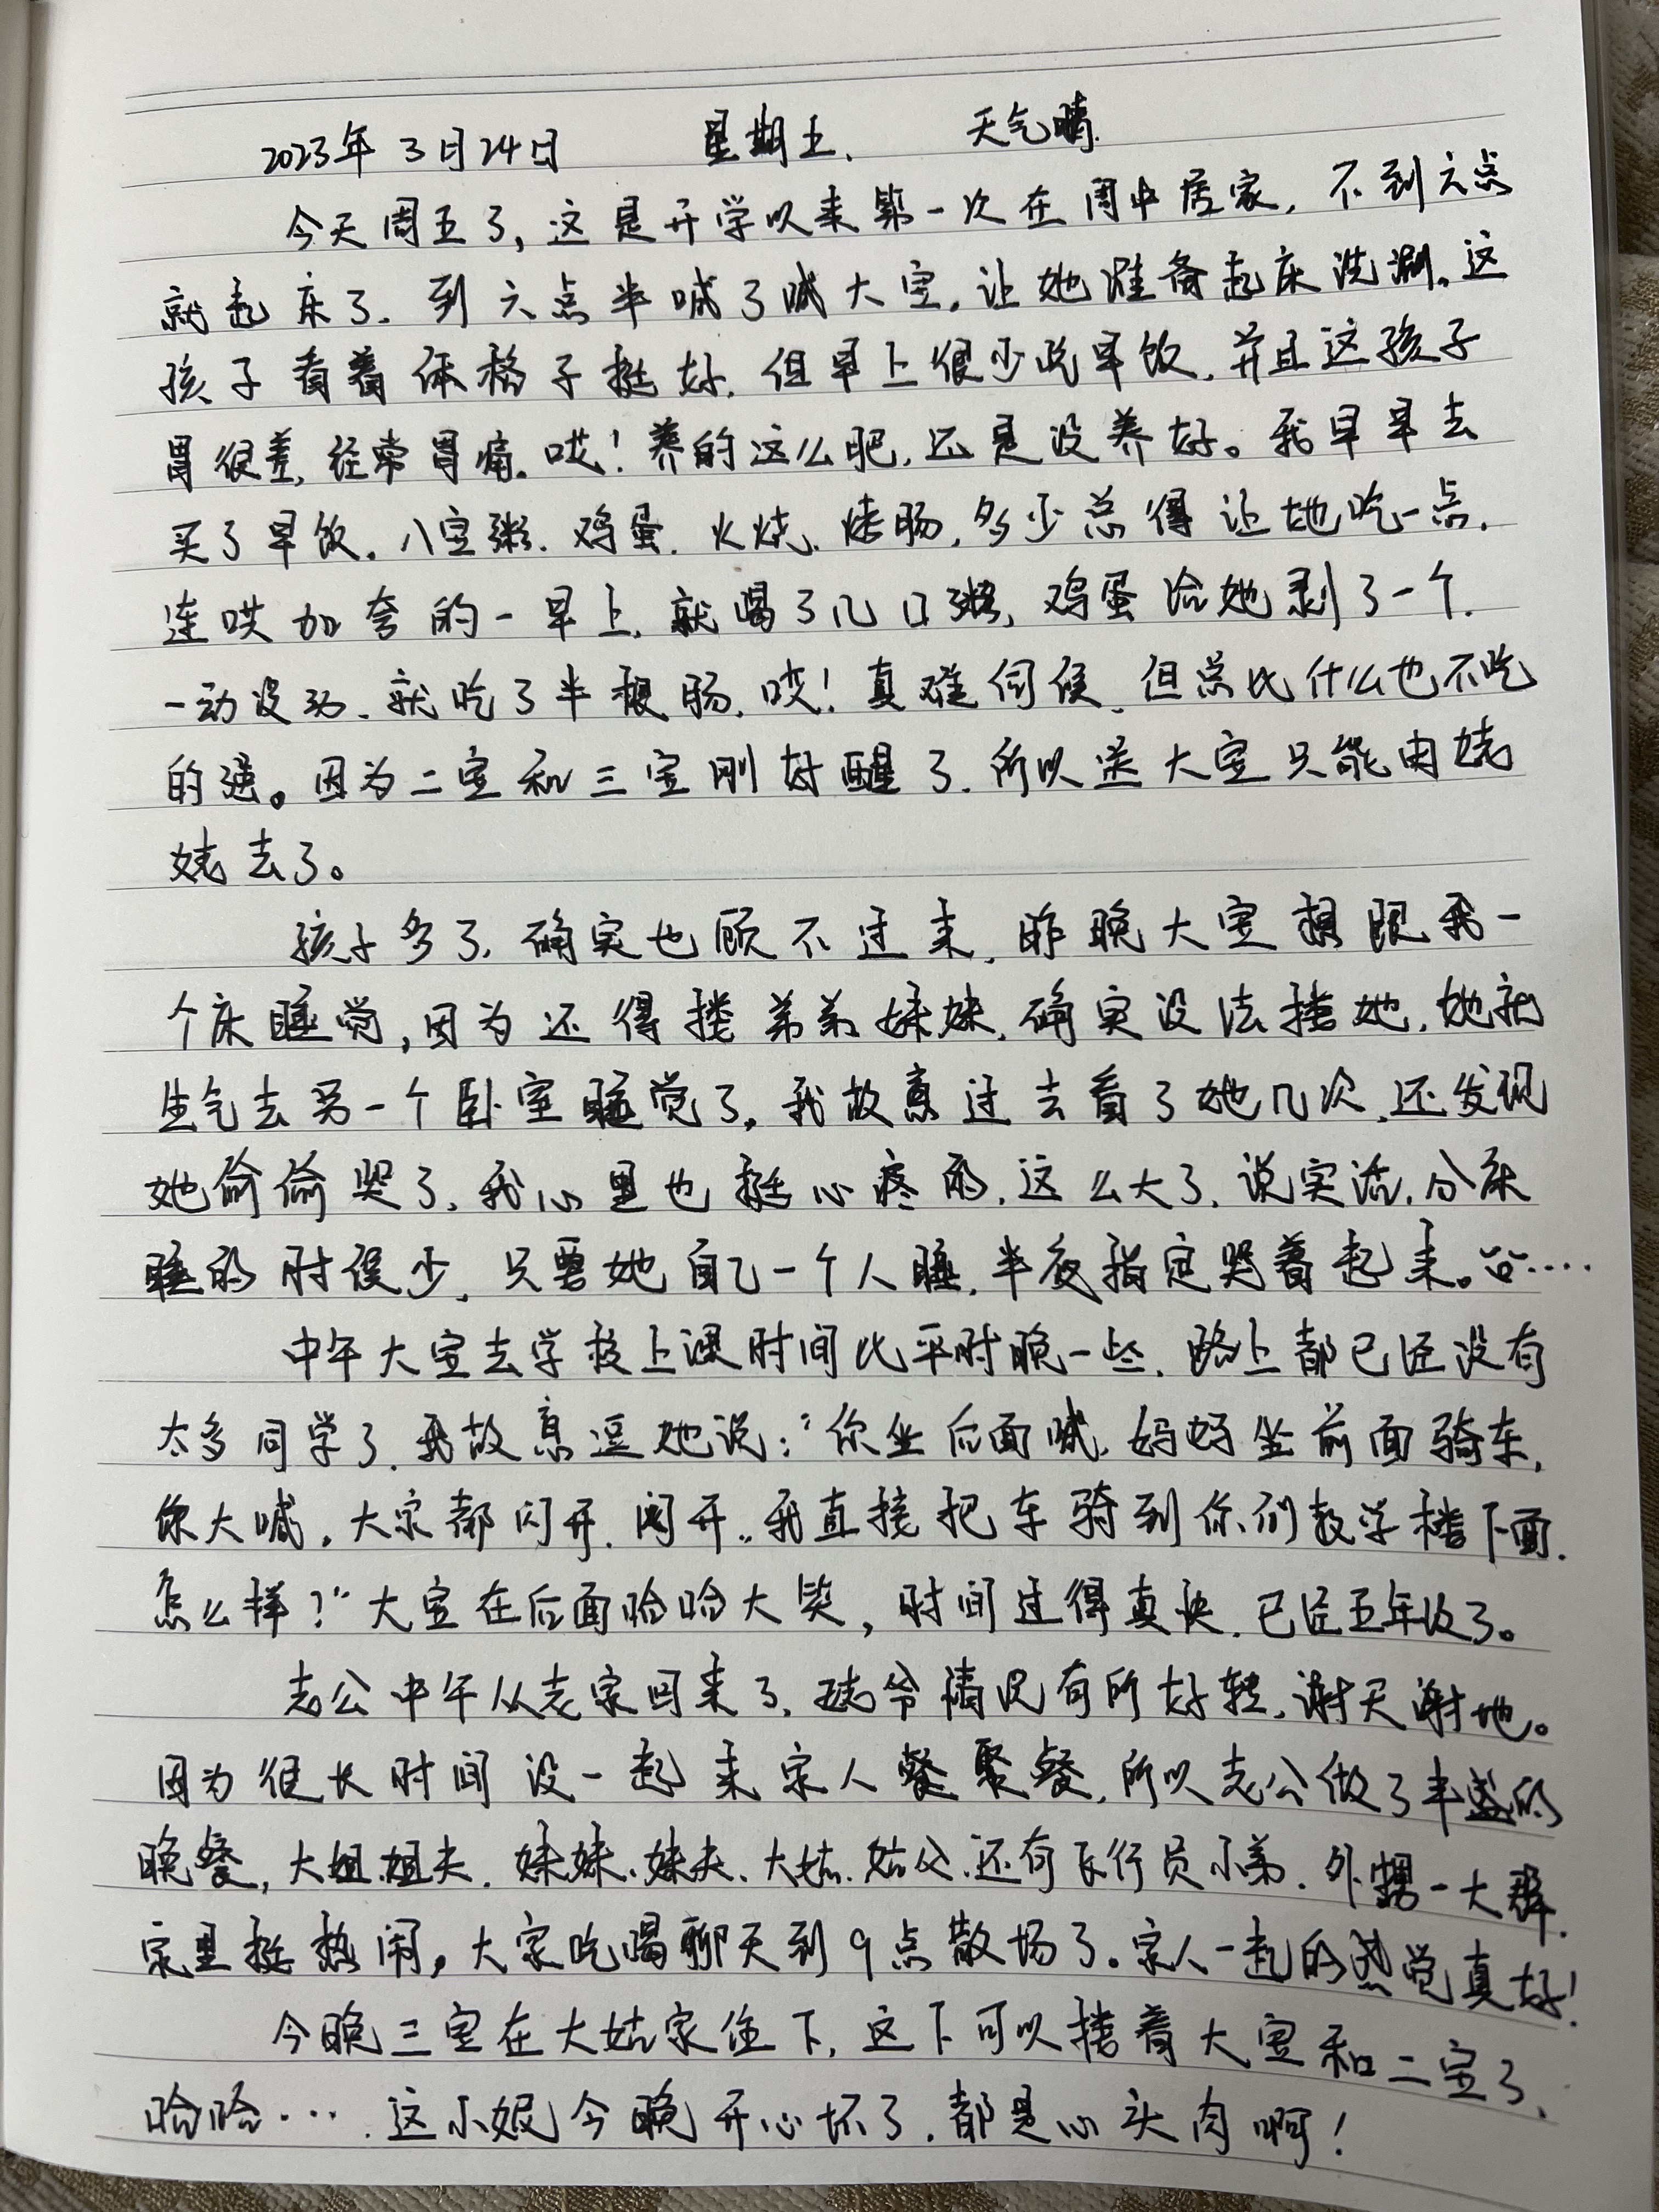 2023年3月24日 星期五. 天气晴.
今天周五了,这是开学以来第一次在周中居家,不到六点
就起床了.到六点半喊了喊大宝,让她准备起床洗漱。这
孩子看着体格子挺好.但早上很少吃早饭.并且这孩子
胃很差,经常胃痛。哎!养的这么肥,还是没养好。我早早去
买了早饭。八宝粥.鸡蛋.火烧.烤肠,多少总得让她吃一点.
连哄加夸的一早上,就喝了几口粥,鸡蛋给她剥了一个.
一动没动.就吃了半根肠.哎!真难伺候.但总比什么也不吃
的强。因为二宝和三宝刚好醒了.所以送大宝只能由姥
姥去了。
孩子多了,确实也顾不过来.昨晚大宝想跟我一
个床睡觉,因为还得搂弟弟妹妹.确实没法搂她,她就
生气去另一个卧室睡觉了,我故意过去看了她几次,还发现
她偷偷哭了.我心里也挺心疼的.这么大了.说实话,分床
睡的时候少,只要她自己一个人睡,半夜指定哭着起来。....
中午大宝去学校上课时间比平时晚一些.路上都已经没有
太多同学了.我故意逗她说:“你坐后面喊,妈妈坐前面骑车,
你大喊,大家都闪开.闪开..我直接把车骑到你们教学楼下面.
怎么样?”大宝在后面哈哈大笑,时间过得真快.已经五年级了。
老公中午从老家回来了,姥爷情况有所好转,谢天谢地。
因为很长时间没一起来家人聚餐,所以老公做了丰盛的
晚餐,大姐.姐夫.妹妹.妹夫.大姑.姑父.还有飞行员小弟.外甥一大群.
家里挺热闹,大家吃喝聊天到9点散场了。家人一起的感觉真好!
今晚三宝在大姑家住下,这下可以搂着大宝和二宝了、
哈哈···.这小妮今晚开心坏了.都是心头肉啊!